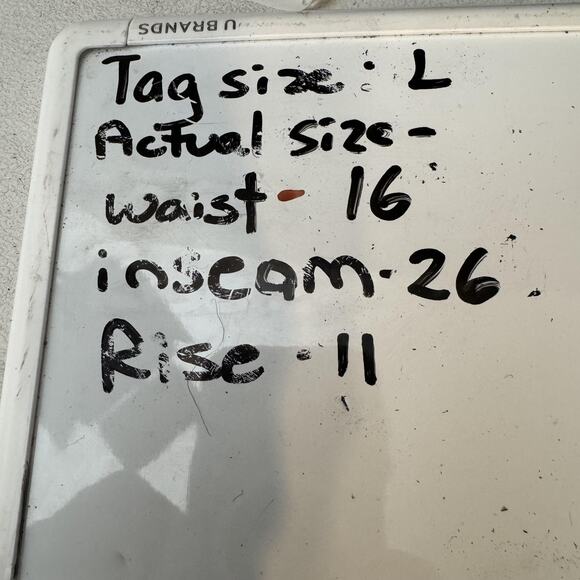 U BRANDS
Tag size: L
Actual size-
waist- 16
inseam-26
Rise-11